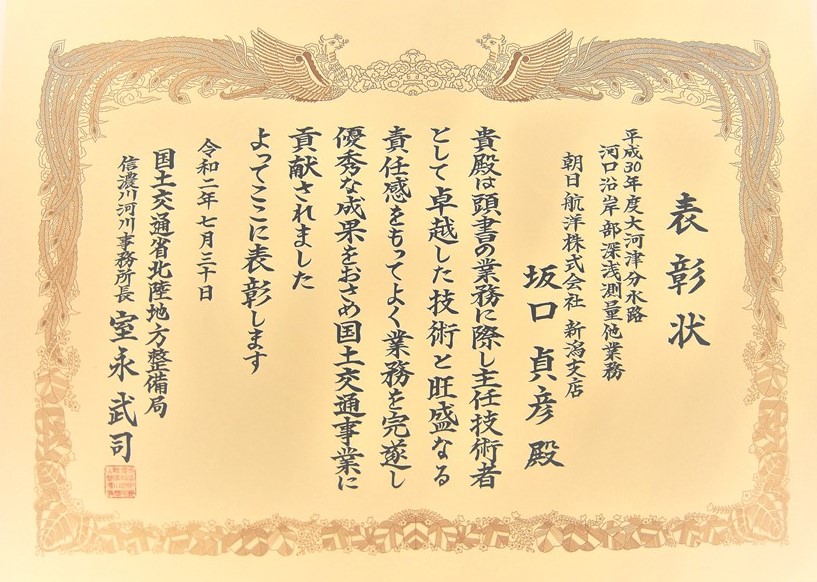 表彰状
平成30年度大河津分水路
河口沿岸部深浅測量他業務
朝日航洋株式会社 新潟支店
坂口 貞彦 殿
貴殿は頭書の業務に際し主任技術者
として卓越した技術と旺盛なる
責任感をもってよく業務を完遂し
優秀な成果をおさめ国土交通事業に
貢献されました
よってここに表彰します
令和二年七月三十日
国土交通省北陸地方整備局
信濃川河川事務所長 室永武司